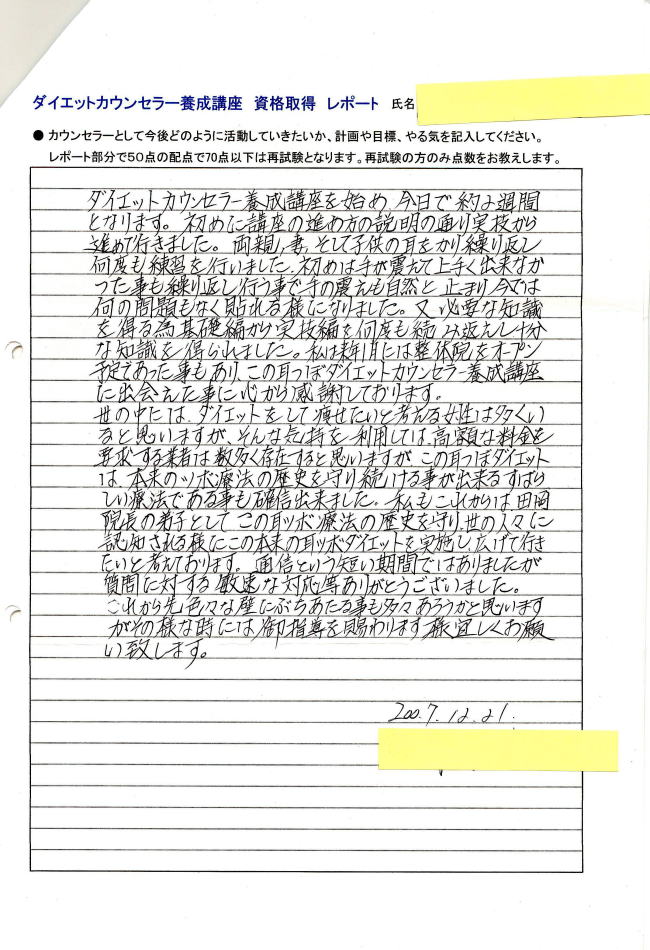 ダイエットカウンセラー養成講座 資格取得 レポート 氏名
● カウンセラーとして今後どのように活動していきたいか、計画や目標、やる気を記入してください。
レポート部分で50点の配点で70点以下は再試験となります。再試験の方のみ点数をお教えします。
ダイエットカウンセラー養成講座を始め、今日で約2週間
となります。初めに講座の進め方の説明の通り実技から
進めて行きました。両親、妻、そして子供の耳をかり繰り返し
何度も練習を行いました。初めは手が震えて上手く出来なか
った事も繰り返し行う事で手の震えも自然と止まり今では
何の問題もなく貼れる様になりました。又、必要な知識
を得る為基礎編から実技編を何度も読み返えし十分
な知識を得られました。私は来年1月には整体院をオープン
予定であった事もあり、この耳つぼダイエットカウンセラー養成講座
に出会えた事に心から感謝しております。
世の中には、ダイエットをして痩せたいと考える女性は多くい
ると思いますが、そんな気持を利用しては、高額な料金を
要求する業者は数多く存在すると思いますが、この耳つぼダイエット
は、本来のツボ療法の歴史を守り続ける事が出来るすばら
しい療法である事も確信出来ました。私もこれからは田岡
院長の弟子としてこの耳ツボ療法の歴史を守り、世の人々に
認知される様にこの本来の耳ツボダイエットを実施し、広げて行き
たいと考ております。通信という短い期間ではありましたが
質問に対する敏速な対応等ありがとうございました。
これから先、色々な壁にぶちあたる事も多々あろうかと思います
がその様な時には、御指導を賜わります様宜しくお願
い致します。
2007.12.21.